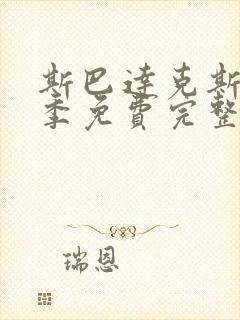 斯巴达克斯
季免费完整
瑞恩